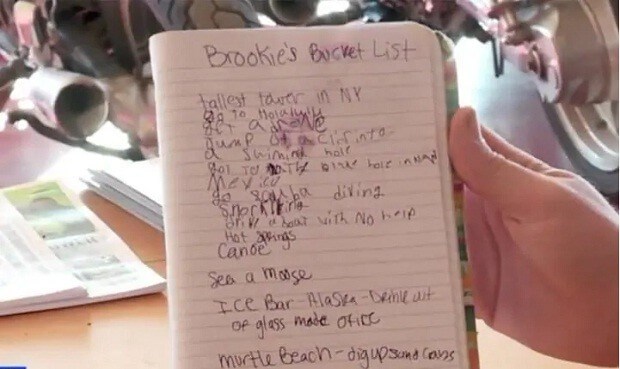 Brookie's Bucket List
tallest tower in NY
go to
get a
Jump of a Clif into
a swiming hole
Go to the blue hole in NM
Mexico
go scuba diving
Snorkiling
drive a boat with No help
Hot Springs
Canoe
See a moose
ICE Bar - Alaska - Drink out
of glass made of ice
Murtle Beach - dig up sand